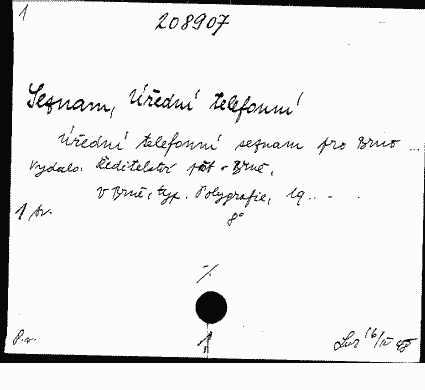 1
208907
Seznam, Úřední telefonní
Úřední telefonní seznam pro Brno ...
Vydalo: Ředitelství pošt v Brně,
V Brně, typ. Polygrafie, 19.. .
1 sv.
8°
%
1
16/IV 48